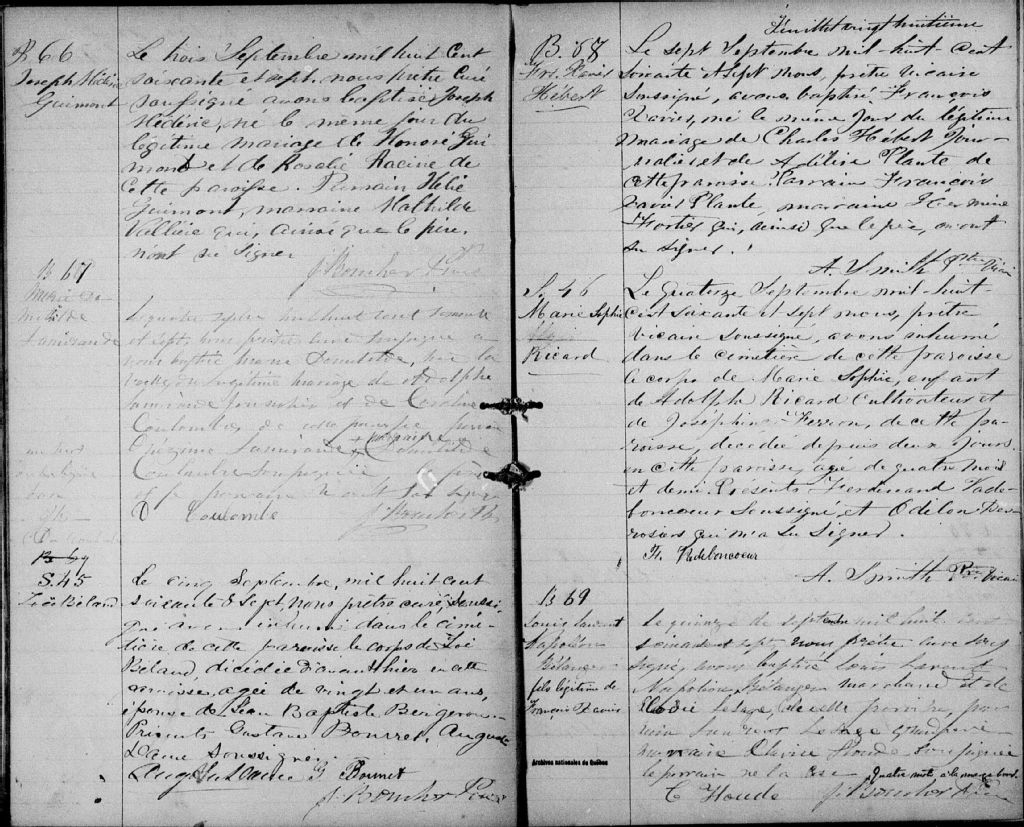 B 66
Joseph Médéric
Guimont
Le trois Septembre mil huit Cent
soixante et sept, nous prêtre Curé
soussigné avons baptisé Joseph
Médéric, né le même jour du
légitime mariage de Honoré Gui
mont et de Rosalie Racine de
cette paroisse. Parrain Hélie
Guimont, marraine Mathilde
Vallière qui, ainsi que le père,
n'ont su signer
J. Boucher Ptre
B 67
Marie Do
mitilde
Lamirande
Le quatre septbre mil huit cent soixante
et sept, nous prêtre curé soussigné a
vons baptisé Marie Domitilde, née la
veille du légitime mariage de Adolphe
Lamirande et de Caroline
Coulombe de cette paroisse parrain
Onézime Lamirande Domitilde
Coulombe soussignée
et le parrain n'ont su signer
D Coulombe
J. Boucher Ptre
B 69
S. 45
Zoé Béland
Le cinq Septembre, mil huit cent
soixante & sept, nous prêtre curé, soussi-
gné avons inhumé dans le cime-
tière de cette paroisse le corps de Zoé
Béland, décédée d'avant hier en cette
paroisse, agée de vingt et un ans,
épouse de Jean Baptiste Bergeron
Présents Gustave Bourret, Auguste
Lanne soussignés
G Bourret
J. Boucher Ptre
Feuillet vingt huitième
B. 68
Frs. Xavier
Hébert
Le sept Septembre mil-huit-cent
soixante et sept Nous, prêtre vicaire
soussigné, avons baptisé François
Xavier, né le même jour du légitime
mariage de Charles Hébert Jour-
nalier et de Adélire Plante de
cette paroisse. Parrain François
Xavier Plante, marraine Hermine
Fortier qui, ainsi que le père, n'ont
su signer.
A. Smith Ptre Vicaire
S. 46
Marie Sophie
Ricard
Le Quatorze Septembre mil-huit-
cent soixante et sept nous, prêtre
vicaire soussigné, avons inhumé
dans le cimetière de cette paroisse
le corps de Marie Sophie, enfant
de Adolphe Ricard cultivateur et
de Josephine Ferron, de cette pa-
roisse, decedée depuis deux jours
en cette paroisse, agée de quatre mois
et demi. Présents Ferdinand Vade-
boncoeur Soussigné, et Odilon Des-
rosiers qui n'a su signer.
F. Vadeboncoeur
A. Smith Ptre Vicaire
B 69
Louis Laurent
Napoléon
Bélanger
fils légitime de
François Xavier
Le quinze de septembre mil huit cent
soixante et sept nous prêtre curé sous
signé, avons baptisé Louis Laurent
Napoléon, Bélanger marchand et de
Elodie Lesage, de cette paroisse, par
rain Laurent Lesage grand père
marraine Clarice Houde soussignée
le parrain ne la
Quatre mots à la marge bons
C Houde
J. Boucher Ptre
Archives nationales du Québec